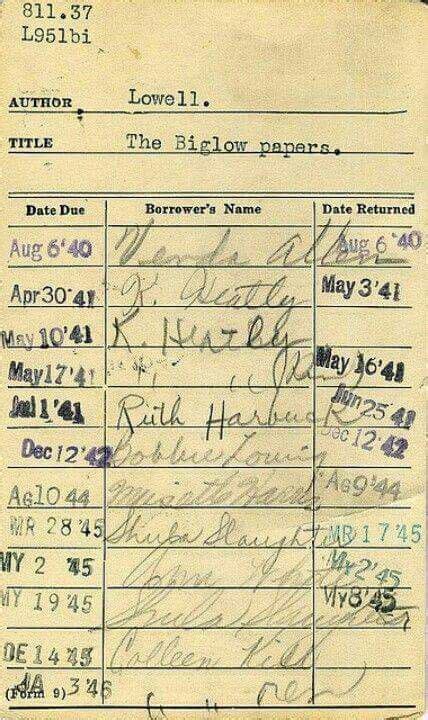 811.37
L951bi
AUTHOR Lowell.
TITLE The Biglow papers.
Date Due Borrower's Name Date Returned
Aug 6 '40 Allen Aug 6 '40
Apr 30 '41 K. Heatly May 3 '41
May 10 '41 K. Heatly
May 17 '41 " " May 16 '41
Jul 1 '41 Ruth Harbuck Jun 25 '41
Dec 12 '42 Bobbie Dec 12 '42
Ag 10 44 Ag 9 '44
MR 28 '45 Shula Slaughter MR 17 '45
MY 2 '45 Ann My 2 '45
MY 19 '45 Shula My 8 '45
DE 14 '45 Colleen
JA 3 '46 " "
(Form 9)